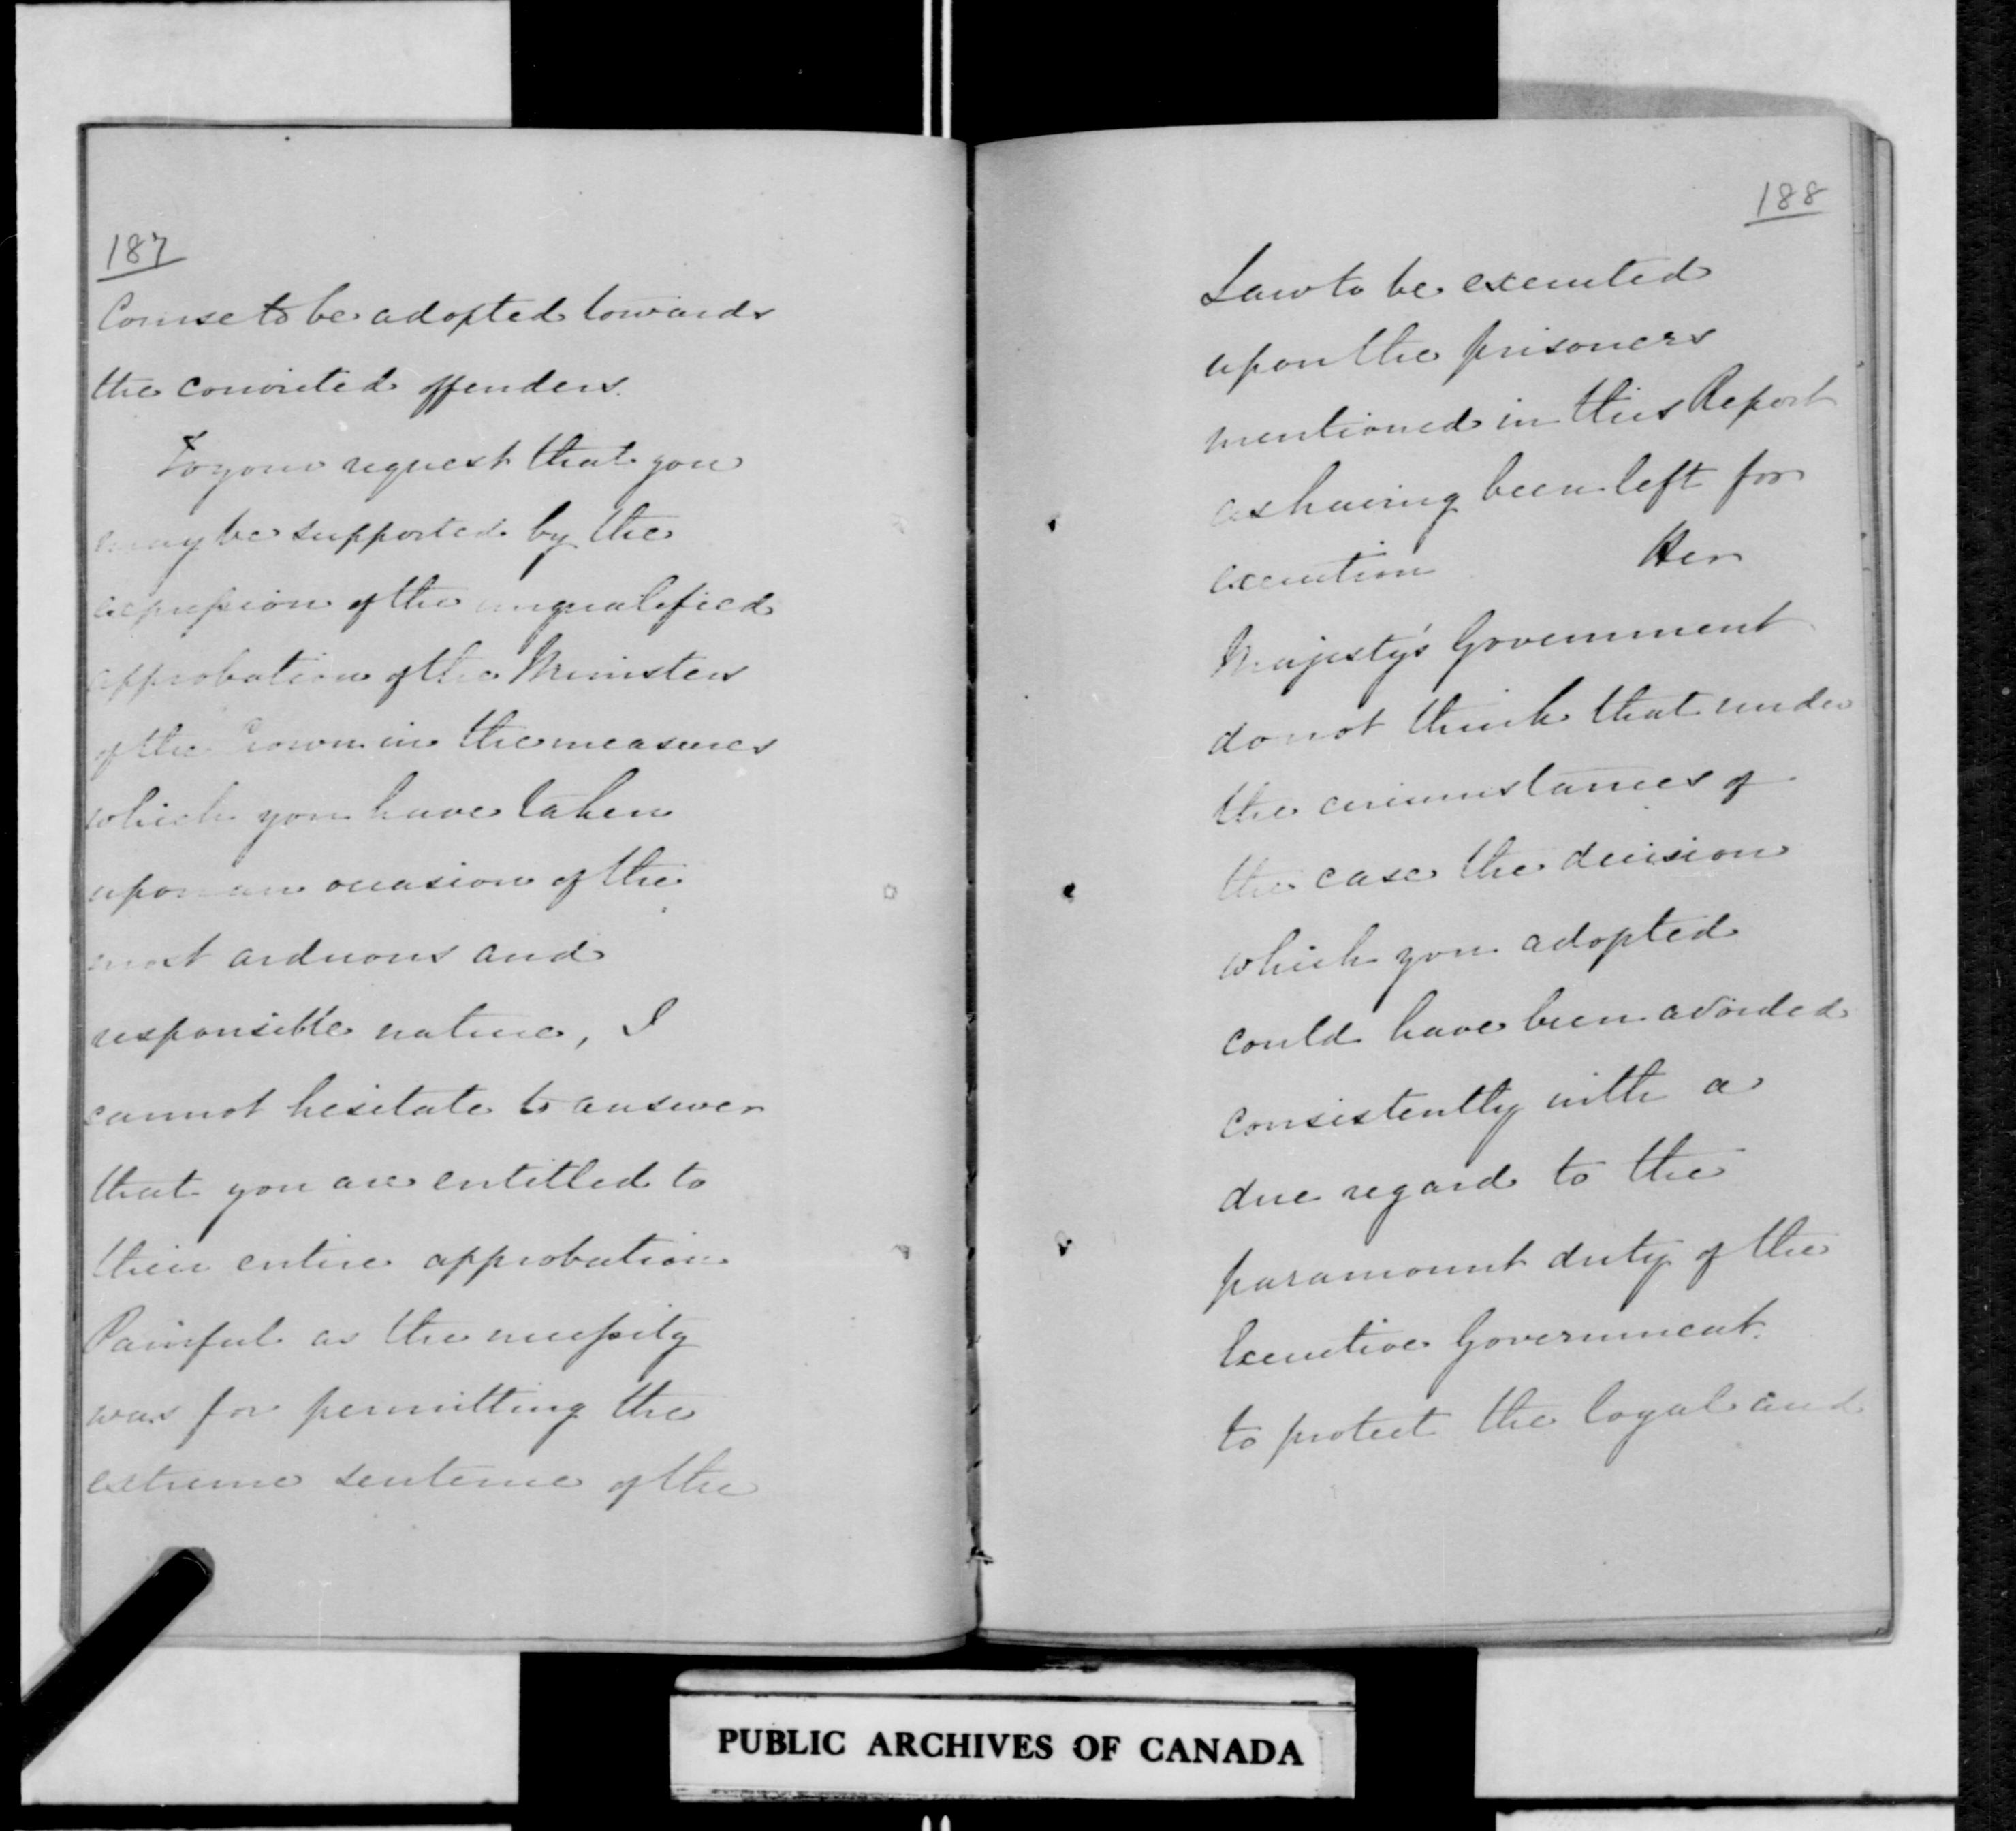 187
Course to be adopted towards
the convicted offenders.
To your request that you
may be supported by the
expression of the unqualified
approbation of the Ministers
of the Crown in the measures
which you have taken
upon an occasion of the
most arduous and
responsible nature, I
cannot hesitate to answer
that you are entitled to
their entire approbation
Painful as the necessity
was for permitting the
extreme sentence of the
188
Law to be executed
upon the prisoners
mentioned in this Report
as having been left for
execution Her
Majesty's Government
do not think that under
the circumstances of
the case the decision
which you adopted
could have been avoided
consistently with a
due regard to the
paramount duty of the
Executive Government
to protect the loyal and
PUBLIC ARCHIVES OF CANADA